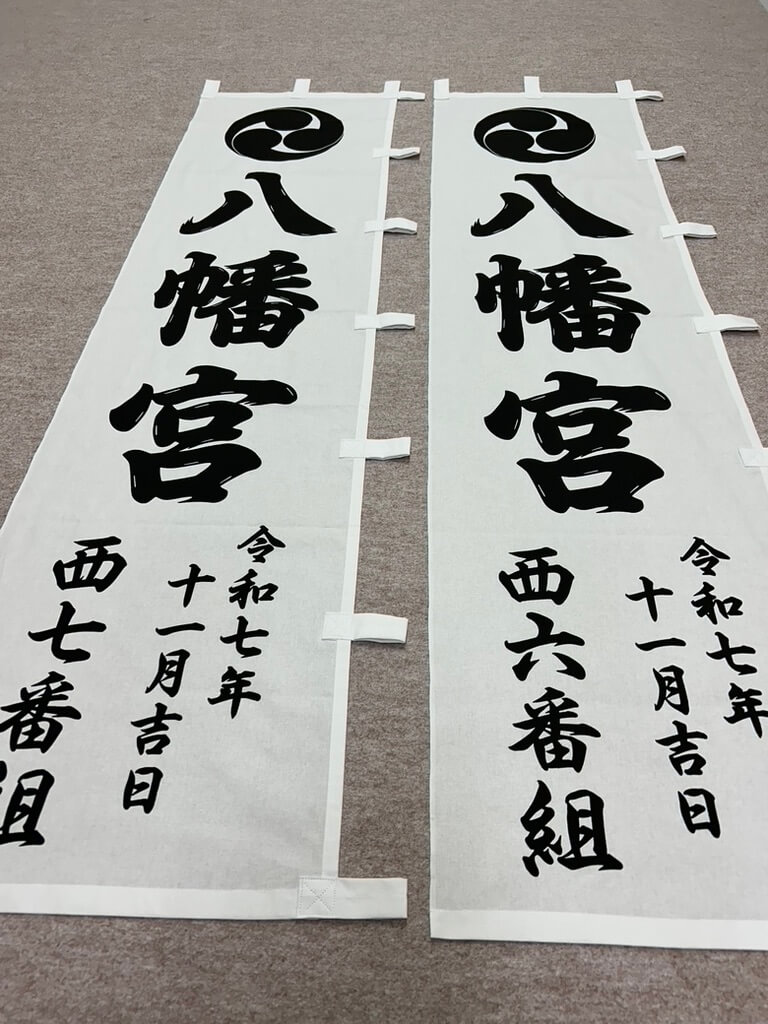 八幡宮
令和七年
十一月吉日
西七番組
八幡宮
令和七年
十一月吉日
西六番組